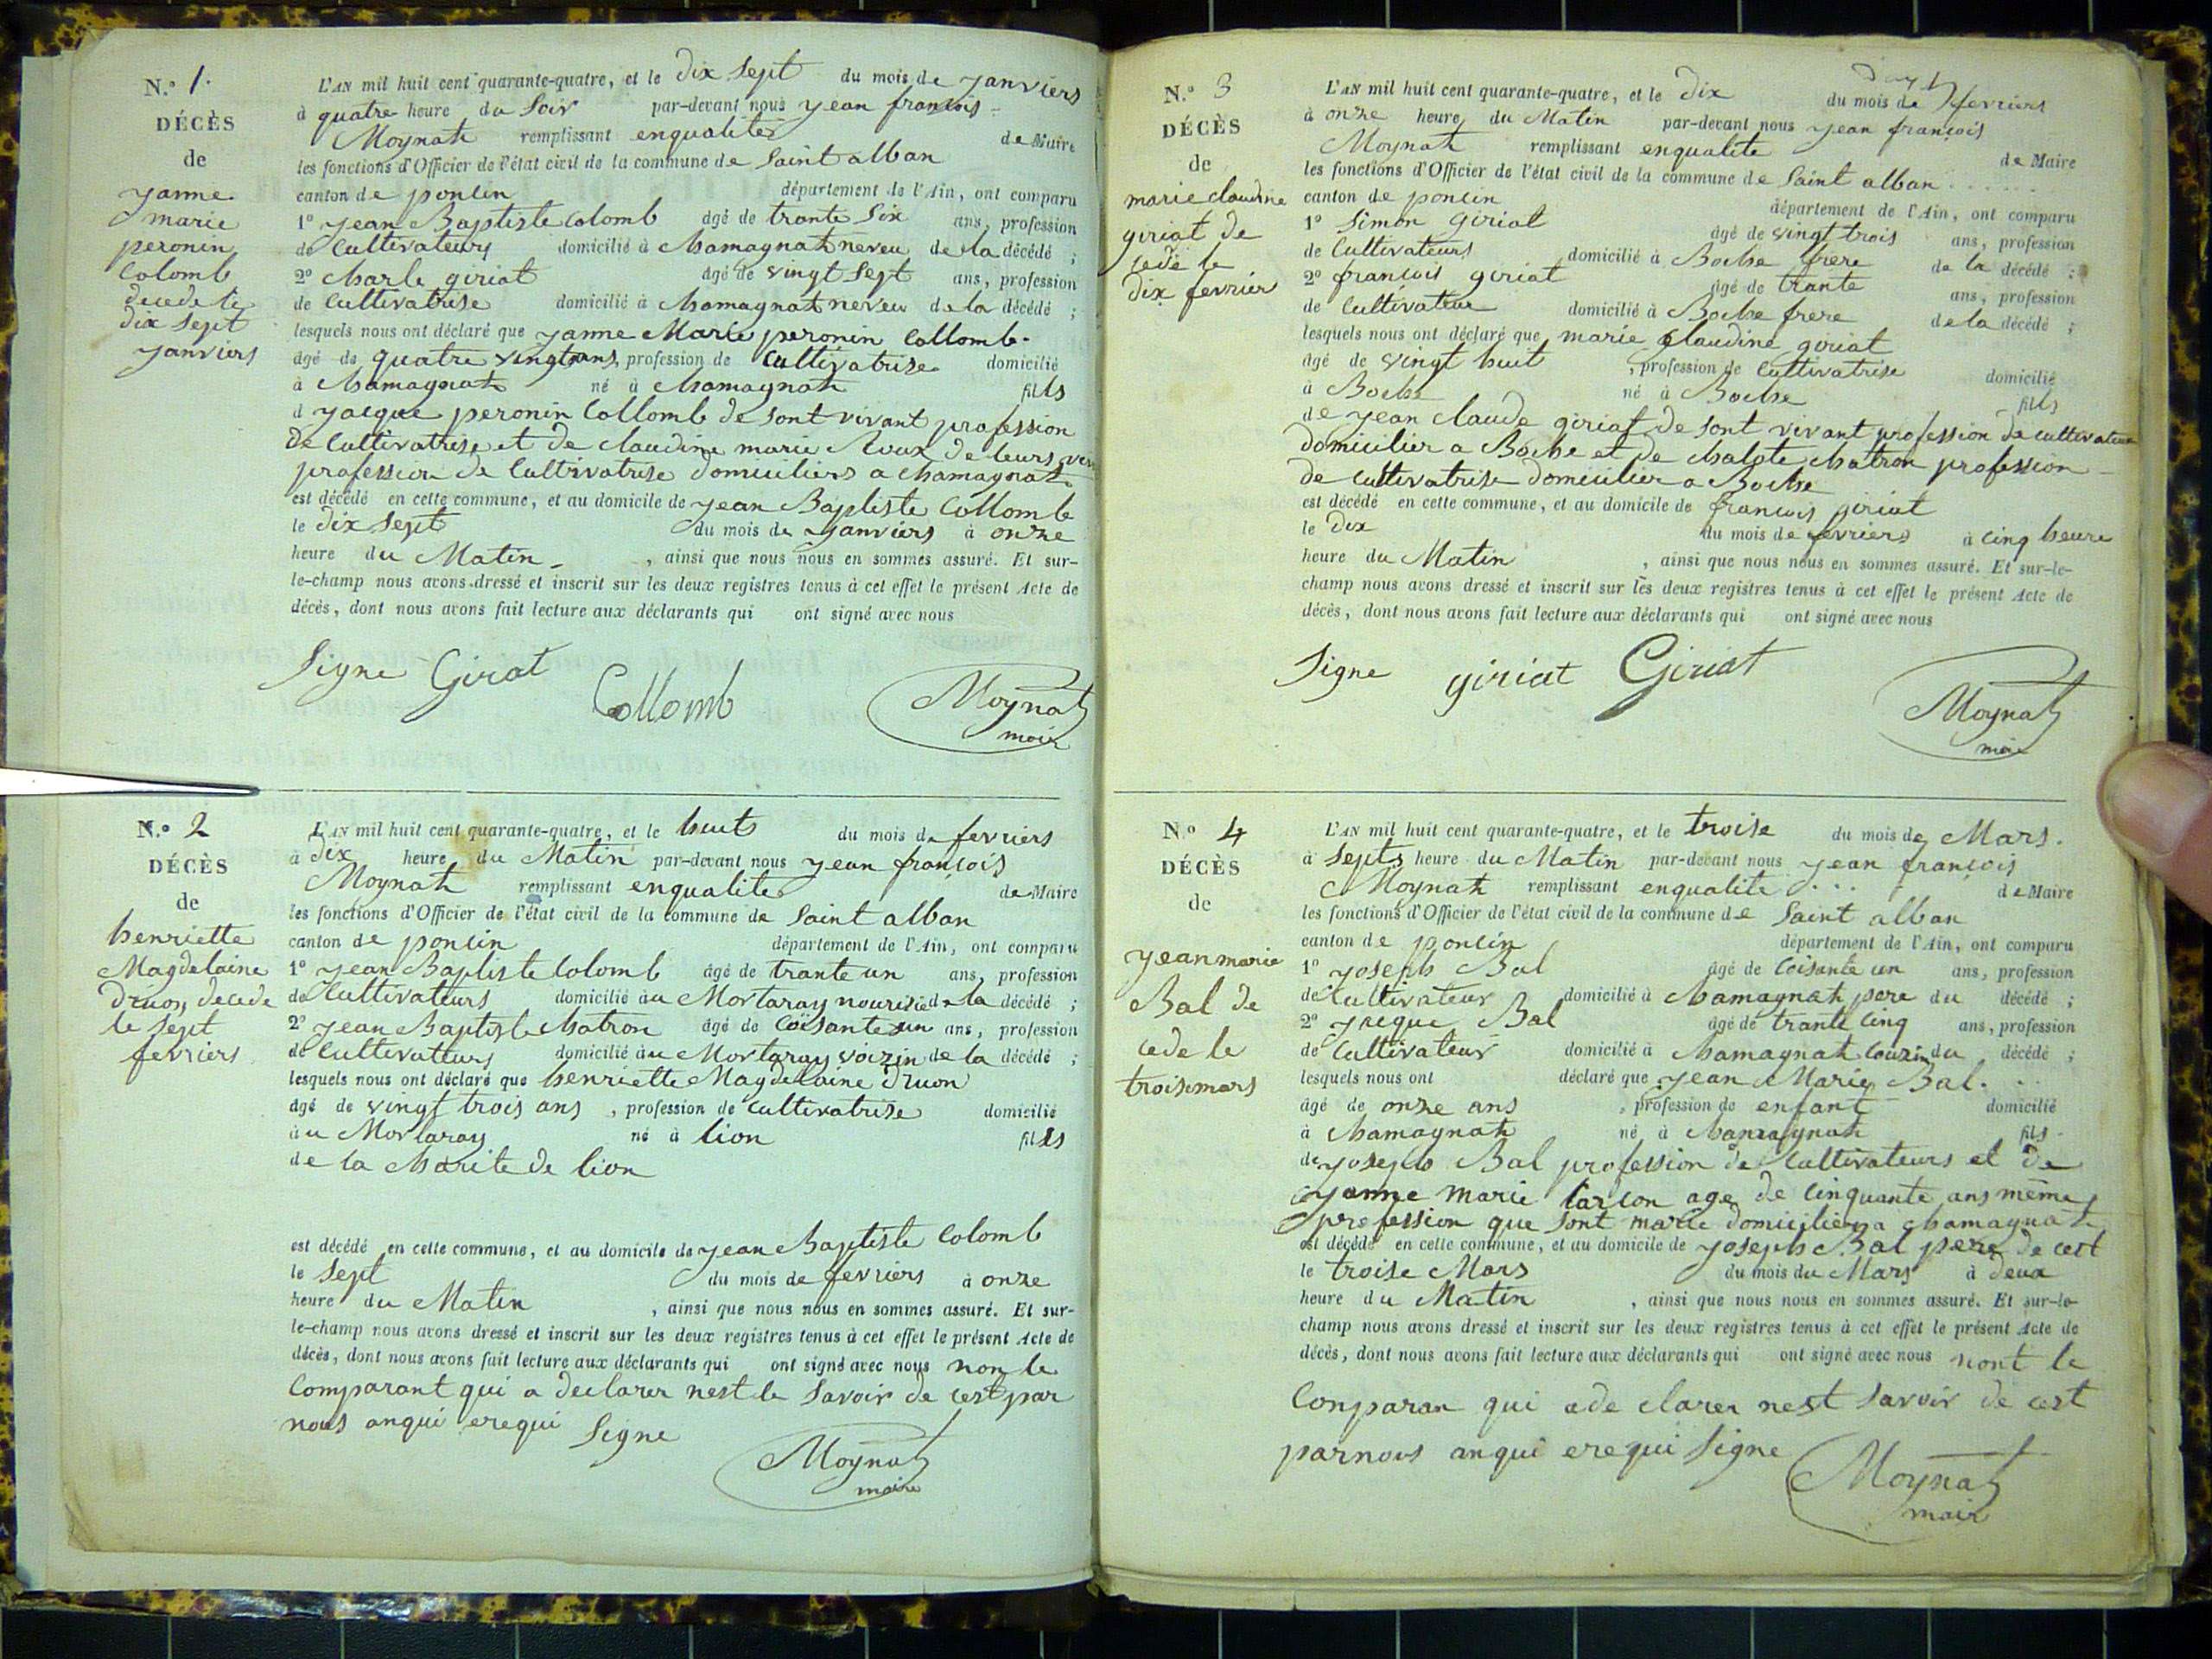 N.° 1.
DÉCÈS
de
yanne
marie
peronin
Colomb
decede le
dix sept
yanviers
L'AN mil huit cent quarante-quatre, et le dix sept du mois de yanviers
à quatre heure du Soir par-devant nous yean francois
Moynat remplissant enqualiter de Maire
les fonctions d'Officier de l'état civil de la commune de Saint alban
canton de poncin département de l'Ain, ont comparu
1° yean Baptiste Colomb âgé de trante Six ans, profession
de Cultivateurs domicilié à Chamagnat neveu de la décédé ;
2° Charle giriat âgé de vingt Sept ans, profession
de Cultivatrise domicilié à Chamagnat neveu de la décédé ;
lesquels nous ont déclaré que yanne Marie peronin Collomb.
âgé de quatre vingts ans, profession de Cultivatrise domicilié
à Chamagnat né à Chamagnat fills
d yacque peronin Collomb de sont vivant profession
de Cultivatrise et de claudine marie Roux de leurs
profession de Cultivatrise domiciliers a chamagnat
est décédé en cette commune, et au domicile de yean Baptiste Collomb
le dix sept du mois de yanviers à onze
heure du Matin , ainsi que nous nous en sommes assuré. Et sur-
le-champ nous avons dressé et inscrit sur les deux registres tenus à cet effet le présent Acte de
décès, dont nous avons fait lecture aux déclarants qui ont signé avec nous
Signe Girat
Collomb
Moynat
mair
N.° 2
DÉCÈS
de
henriette
Magdelaine
Druon decede
le Sept
fevriers
L'AN mil huit cent quarante-quatre, et le huits du mois de fevriers
à dix heure du Matin par-devant nous yean françois
Moynat remplissant enqualiter de Maire
les fonctions d'Officier de l'état civil de la commune de Saint alban
canton de poncin département de l'Ain, ont comparu
1° yean Baptiste Colomb âgé de trante un ans, profession
de Cultivateurs domicilié au Mortaray nourisié de la décédé ;
2° yean Baptiste Chatron âgé de Coisante un ans, profession
de Cultivateurs domicilié au Mortaray voizin de la décédé ;
lesquels nous ont déclaré que henriette Magdelaine Druon
âgé de vingt trois ans , profession de Cultivatrise domicilié
au Mortaray né à lion fills
de la Charite de lion
est décédé en cette commune, et au domicile de yean Baptiste Colomb
le Sept du mois de fevriers à onze
heure du Matin , ainsi que nous nous en sommes assuré. Et sur-
le-champ nous avons dressé et inscrit sur les deux registres tenus à cet effet le présent Acte de
décès, dont nous avons fait lecture aux déclarants qui ont signé avec nous non le
Comparant qui a declarer nest le Savoir de cest par
nous anqui erequi Signe
Moynat
maire
N.° 3
DÉCÈS
de
marie claudine
giriat de
cede le
dix fevrier
L'AN mil huit cent quarante-quatre, et le dix du mois de fevriers
à onze heure du Matin par-devant nous yean françois
Moynat remplissant enqualite de Maire
les fonctions d'Officier de l'état civil de la commune de Saint alban
canton de poncin département de l'Ain, ont comparu
1° Simon giriat âgé de vingt trois ans, profession
de Cultivateurs domicilié à Boche frere de la décédé ;
2° francois giriat âgé de trante ans, profession
de Cultivateur domicilié à Boche frere de la décédé ;
lesquels nous ont déclaré que marie glaudine giriat
âgé de vingt huit , profession de Cultivatrise domicilié
à Boche né à Boche fills
de yean claude giriat de sont vivant profession de cultivateur
domicilier a Boche et de chalote chatron profession
de cultivatrise domicilier a Boche
est décédé en cette commune, et au domicile de francois giriat
le dix du mois de fevriers à cinq heure
heure du Matin , ainsi que nous nous en sommes assuré. Et sur-le-
champ nous avons dressé et inscrit sur les deux registres tenus à cet effet le présent Acte de
décès, dont nous avons fait lecture aux déclarants qui ont signé avec nous
Signe giriat Giriat
Moynat
mair
N.° 4
DÉCÈS
de
yean marie
Bal de
cede le
troise mars
L'AN mil huit cent quarante-quatre, et le troise du mois de Mars.
à Septs heure du Matin par-devant nous yean françois
Moynat remplissant enqualite de Maire
les fonctions d'Officier de l'état civil de la commune de Saint alban
canton de poncin département de l'Ain, ont comparu
1° yoseph Bal âgé de Coisante un ans, profession
de Cultivateur domicilié à Chamagnat pere du décédé ;
2° yacque Bal âgé de trante cinq ans, profession
de Cultivateur domicilié à Chamagnat Couzin du décédé ;
lesquels nous ont déclaré que yean Marie Bal.
âgé de onze ans , profession de enfant domicilié
à Chamagnat né à Chamagnat fils
de yoseph Bal profession de Cultivateurs et de
yanne marie Carcon age de cinquante ans même
profession que sont marie domicilier a chamagnat
est décédé en cette commune, et au domicile de yoseph Bal pere de cest
le troise Mars du mois du Mars à deux
heure du Matin , ainsi que nous nous en sommes assuré. Et sur-le-
champ nous avons dressé et inscrit sur les deux registres tenus à cet effet le présent Acte de
décès, dont nous avons fait lecture aux déclarants qui ont signé avec nous nont le
Conparan qui ade clarer nest Savoir de cest
parnous anqui erequi Signe
Moynat
mair